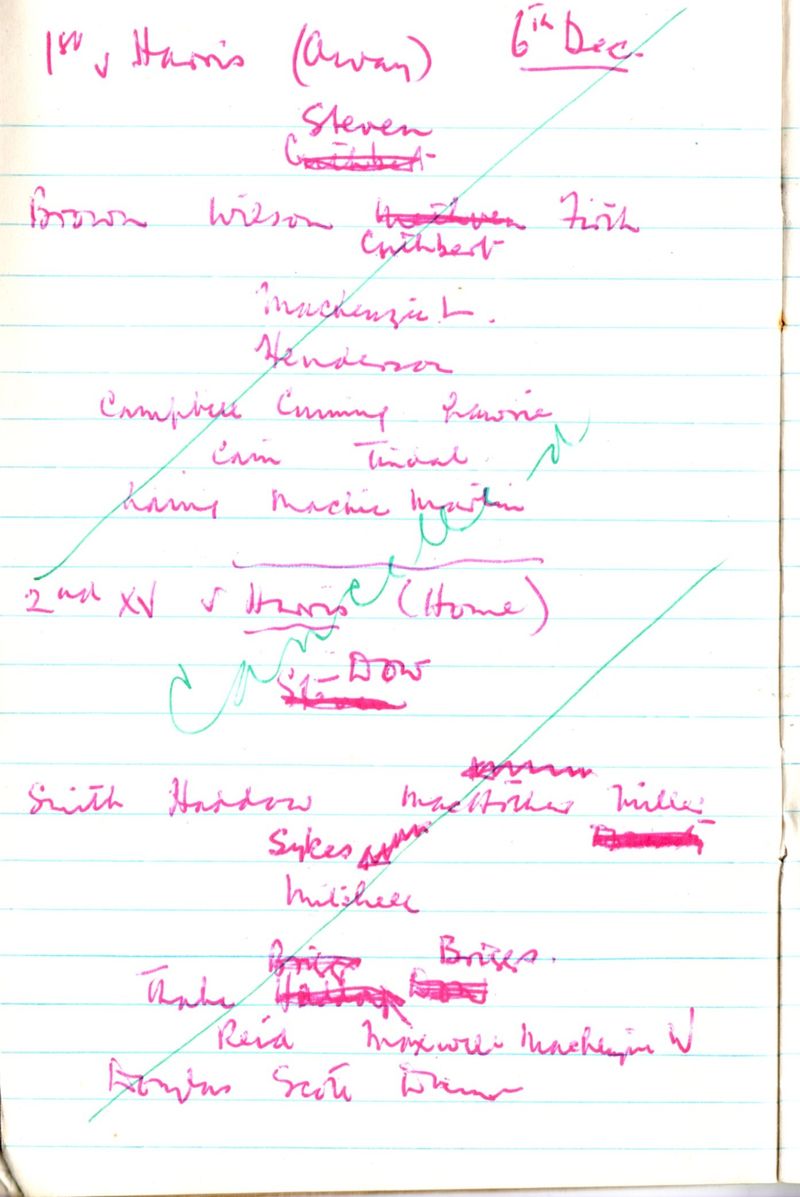 1st v Harris (Away) 6th Dec.
Steven
Cuthbert
Brown Wilson Methven Firth
Cuthbert
Mackenzie L.
Henderson
Campbell Cumming Lawrie
Cain Tindal
Laing Mackie Martin
Cancelled
2nd XV v Harris (Home)
Dow
Steven
Smith Haddow MacArthur Miller
Sykes
Mitchell
Briggs Briggs.
Haddow Dow
Reid Maxwell Mackenzie W
Douglas Scott